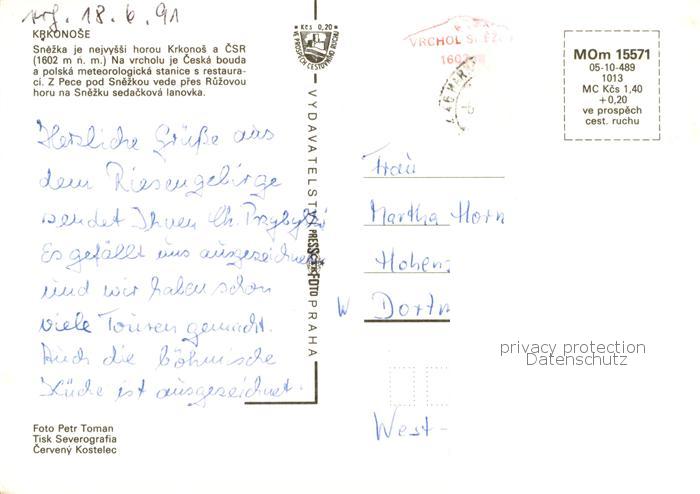 18.6.91
KRKONOŠE
Sněžka je nejvyšší horou Krkonoš a ČSR
(1602 m n. m.) Na vrcholu je Česká bouda
a polská meteorologická stanice s restaura-
cí. Z Pece pod Sněžkou vede přes Růžovou
horu na Sněžku sedačková lanovka.
Herzliche Grüße aus
dem Riesengebirge
sendet Ihnen Ch. Przybylski
Es gefällt uns ausgezeichnet
und wir haben schon
viele Touren gemacht.
Auch die böhmische
Küche ist ausgezeichnet.
Foto Petr Toman
Tisk Severografia
Červený Kostelec
Kčs 0,20
VE PROSPĚCH CESTOVNÍHO RUCHU
VYDAVATELSTVÍ PRESSFOTO PRAHA
VRCHOL SNĚŽ
1602
MOm 15571
05-10-489
1013
MC Kčs 1,40
+0,20
ve prospěch
cest. ruchu
Frau
Martha Horn
Hohens
W Dortm
West-
privacy protection
Datenschutz